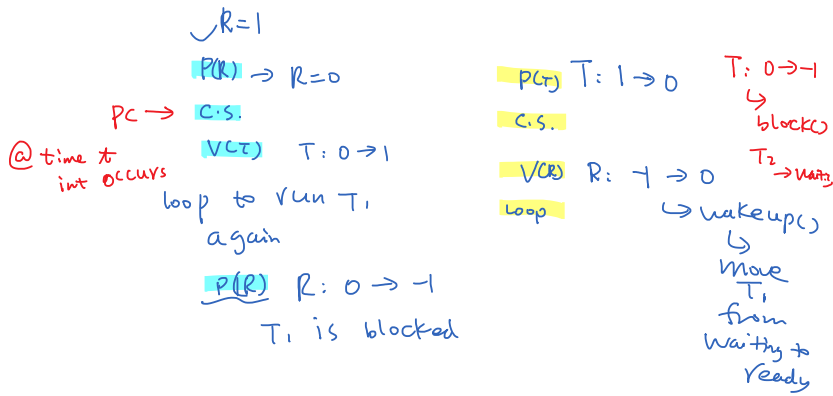 ✓R=1
P(R) → R=0
PC → C.S.
@ time t
int occurs
V(T) T: 0→1
loop to run T₁
again
P(R) R: 0 → -1
T₁ is blocked
P(T) T: 1→0
C.S.
V(R) R: -1 → 0
Loop
↳ wakeup()
↳
move
T₁
from
waiting to
ready
T: 0→-1
↳
block()
T₂
→ waiting